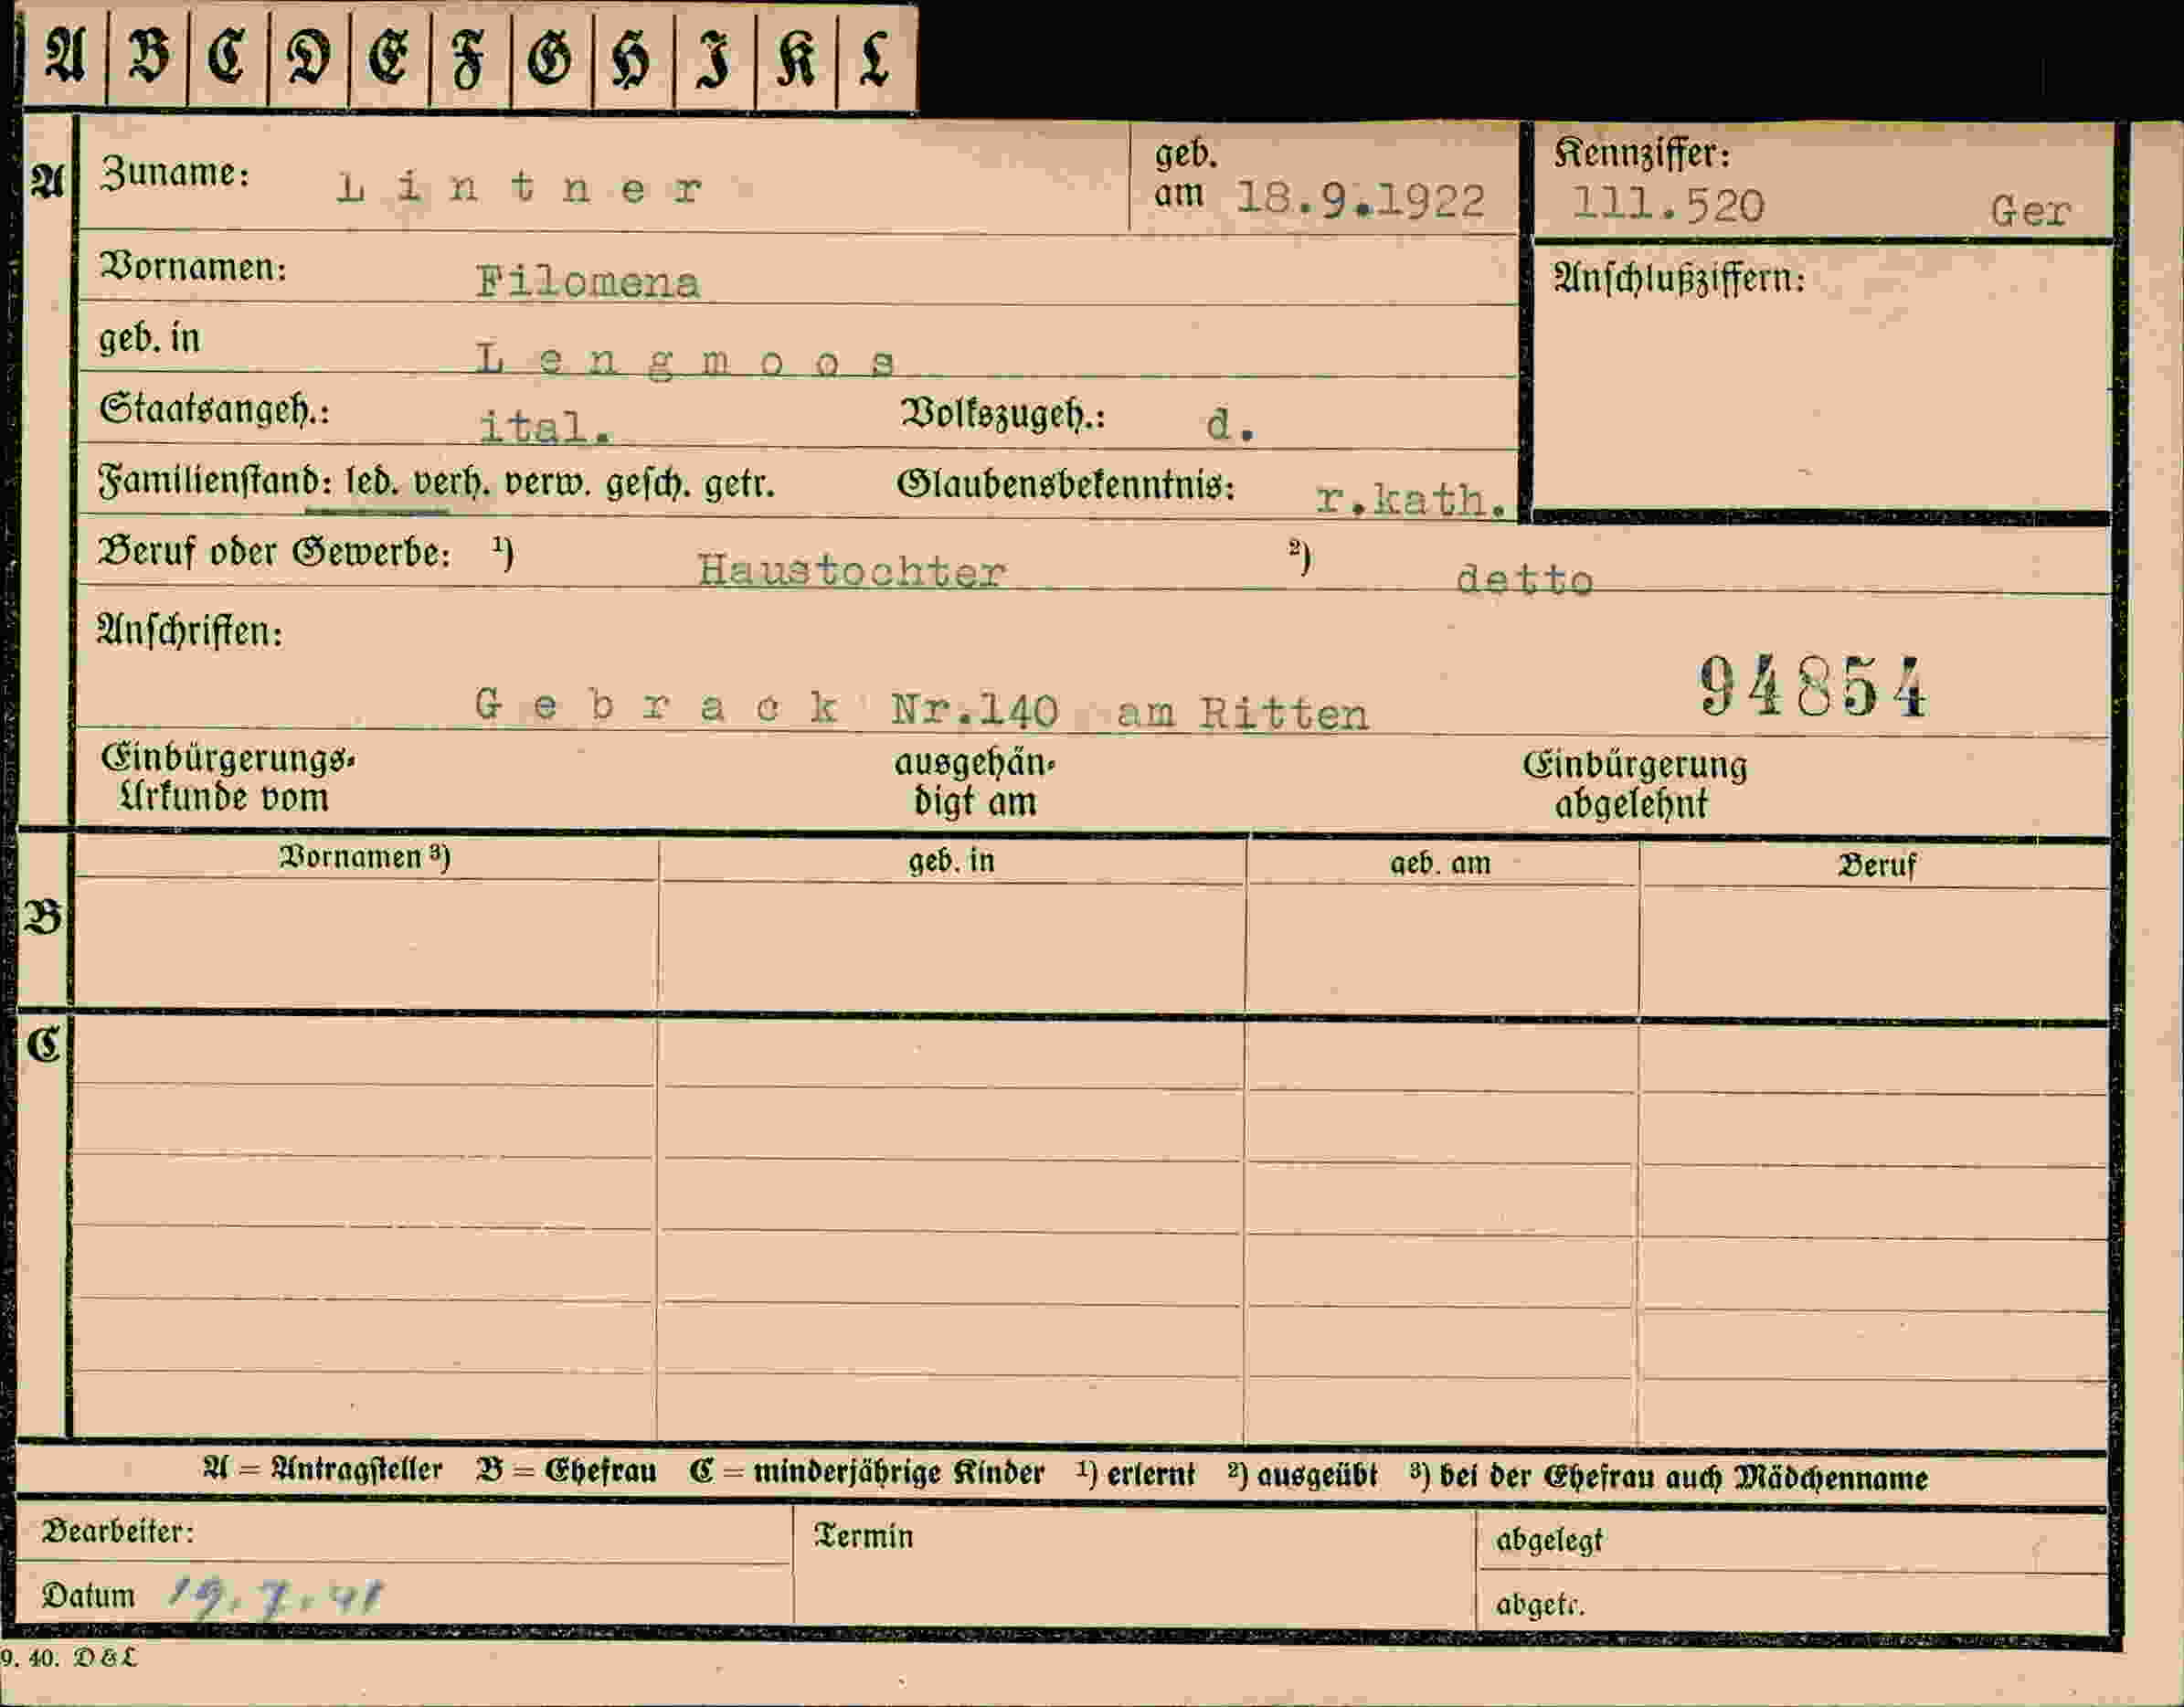 A B C D E F G H I K L
A Zuname: Lintner geb. am 18.9.1922 Kennziffer: 111.520 Ger
Vornamen: Filomena Anschlußziffern:
geb. in Lengmoos
Staatsangeh.: ital. Volkszugeh.: d.
Familienstand: led. verh. verw. gesch. getr. Glaubensbekenntnis: r.kath.
Beruf oder Gewerbe: 1) Haustochter 2) detto
Anschriften:
Gebrack Nr.140 am Ritten 94854
Einbürgerungs- ausgehän- Einbürgerung
Urkunde vom digt am abgelehnt
Vornamen 3) geb. in geb. am Beruf
B
C
A = Antragsteller B = Ehefrau C = minderjährige Kinder 1) erlernt 2) ausgeübt 3) bei der Ehefrau auch Mädchenname
Bearbeiter: Termin abgelegt
Datum 19.7.41 abgetr.
9. 40. D & L